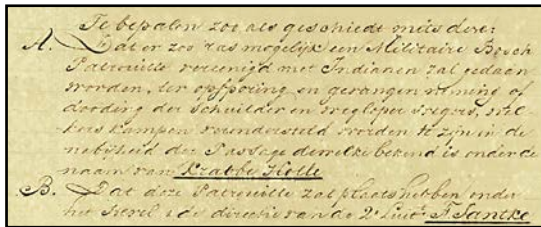 Te bepalen zoo als geschiedt mits deze:
A. Dat er zoo ras mogelijk een Militaire Bosch
Patrouille vereenigd met Indianen zal gedaan
worden, ter opsporing en gevangen neming of
dooding der schuilder en wegloper negers, wel-
kers kampen verondersteld worden te zijn in de
nabijheid der Passage dewelke bekend is onder de
naam van Krabbe Holle
B. Dat deze Patrouille zal plaats hebben onder
het bevel & de directie van de 2e Luitt. F. Santke